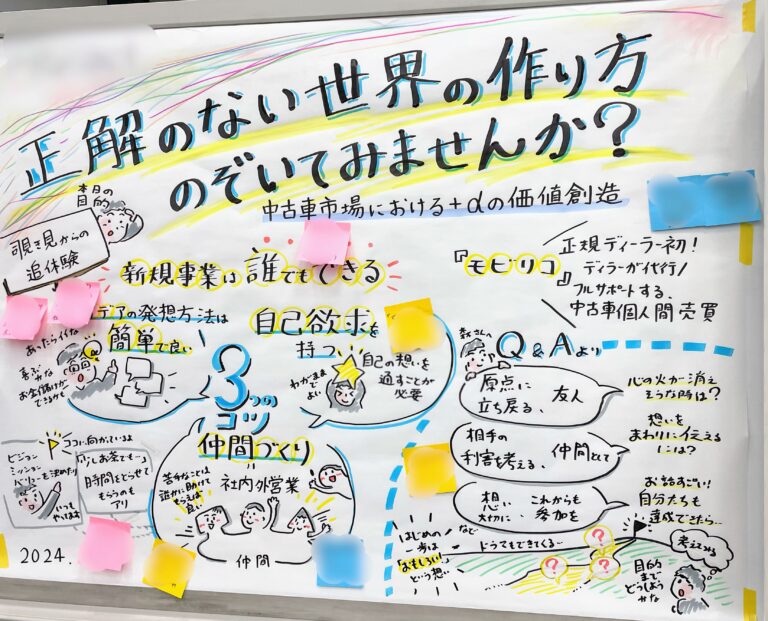 正解のない世界の作り方
のぞいてみませんか?
中古車市場における+αの価値創造
本日の
目的
覗き見からの
追体験
新規事業は誰でもできる
デアの発想方法は
簡単で良い
あったらイイな
喜ぶ
かな
お金儲けが
できるかも
3つの
コツ
自己欲求を
持つ
わがまま
でよい
自己の想いを
通すことが
必要
仲間づくり
苦手なことは
誰かに助けて
もらえば
良い
社内外営業
仲間
ココに向かっているよ
ビジョン
ミッション
バリューを決めたり
いつも
やってます
少しお茶でも…と
時間をとらせて
もらうのも
アリ
2024.
『モビリコ』
正規ディーラー初!
ディーラーが代行/
フルサポートする、
中古車個人間売買
森さんへ
Q&Aより
原点に
立ち戻る、友人
心の火が消え
そうな時は?
相手の
利害を考える、仲間として
想いを
まわりに伝える
には?
想い
大切に、これからも
参加を
お給すごい!
自分たちも
達成できたら…
はじめの
一歩は
「おもしろい!」
という想い
など
ドラマもできてくる…
?
?
?
?
考えてみる
目的
まで
どうしよう
かな